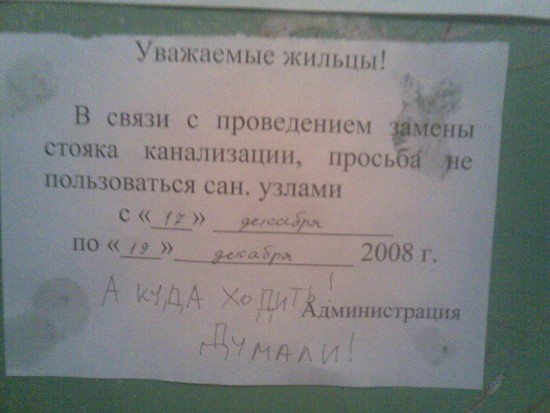 Уважаемые жильцы!
В связи с проведением замены
стояка канализации, просьба не
пользоваться сан. узлами
с «17» декабря
по «19» декабря 2008 г.
А КУДА ХОДИТЬ!
Администрация
ДУМАЛИ!